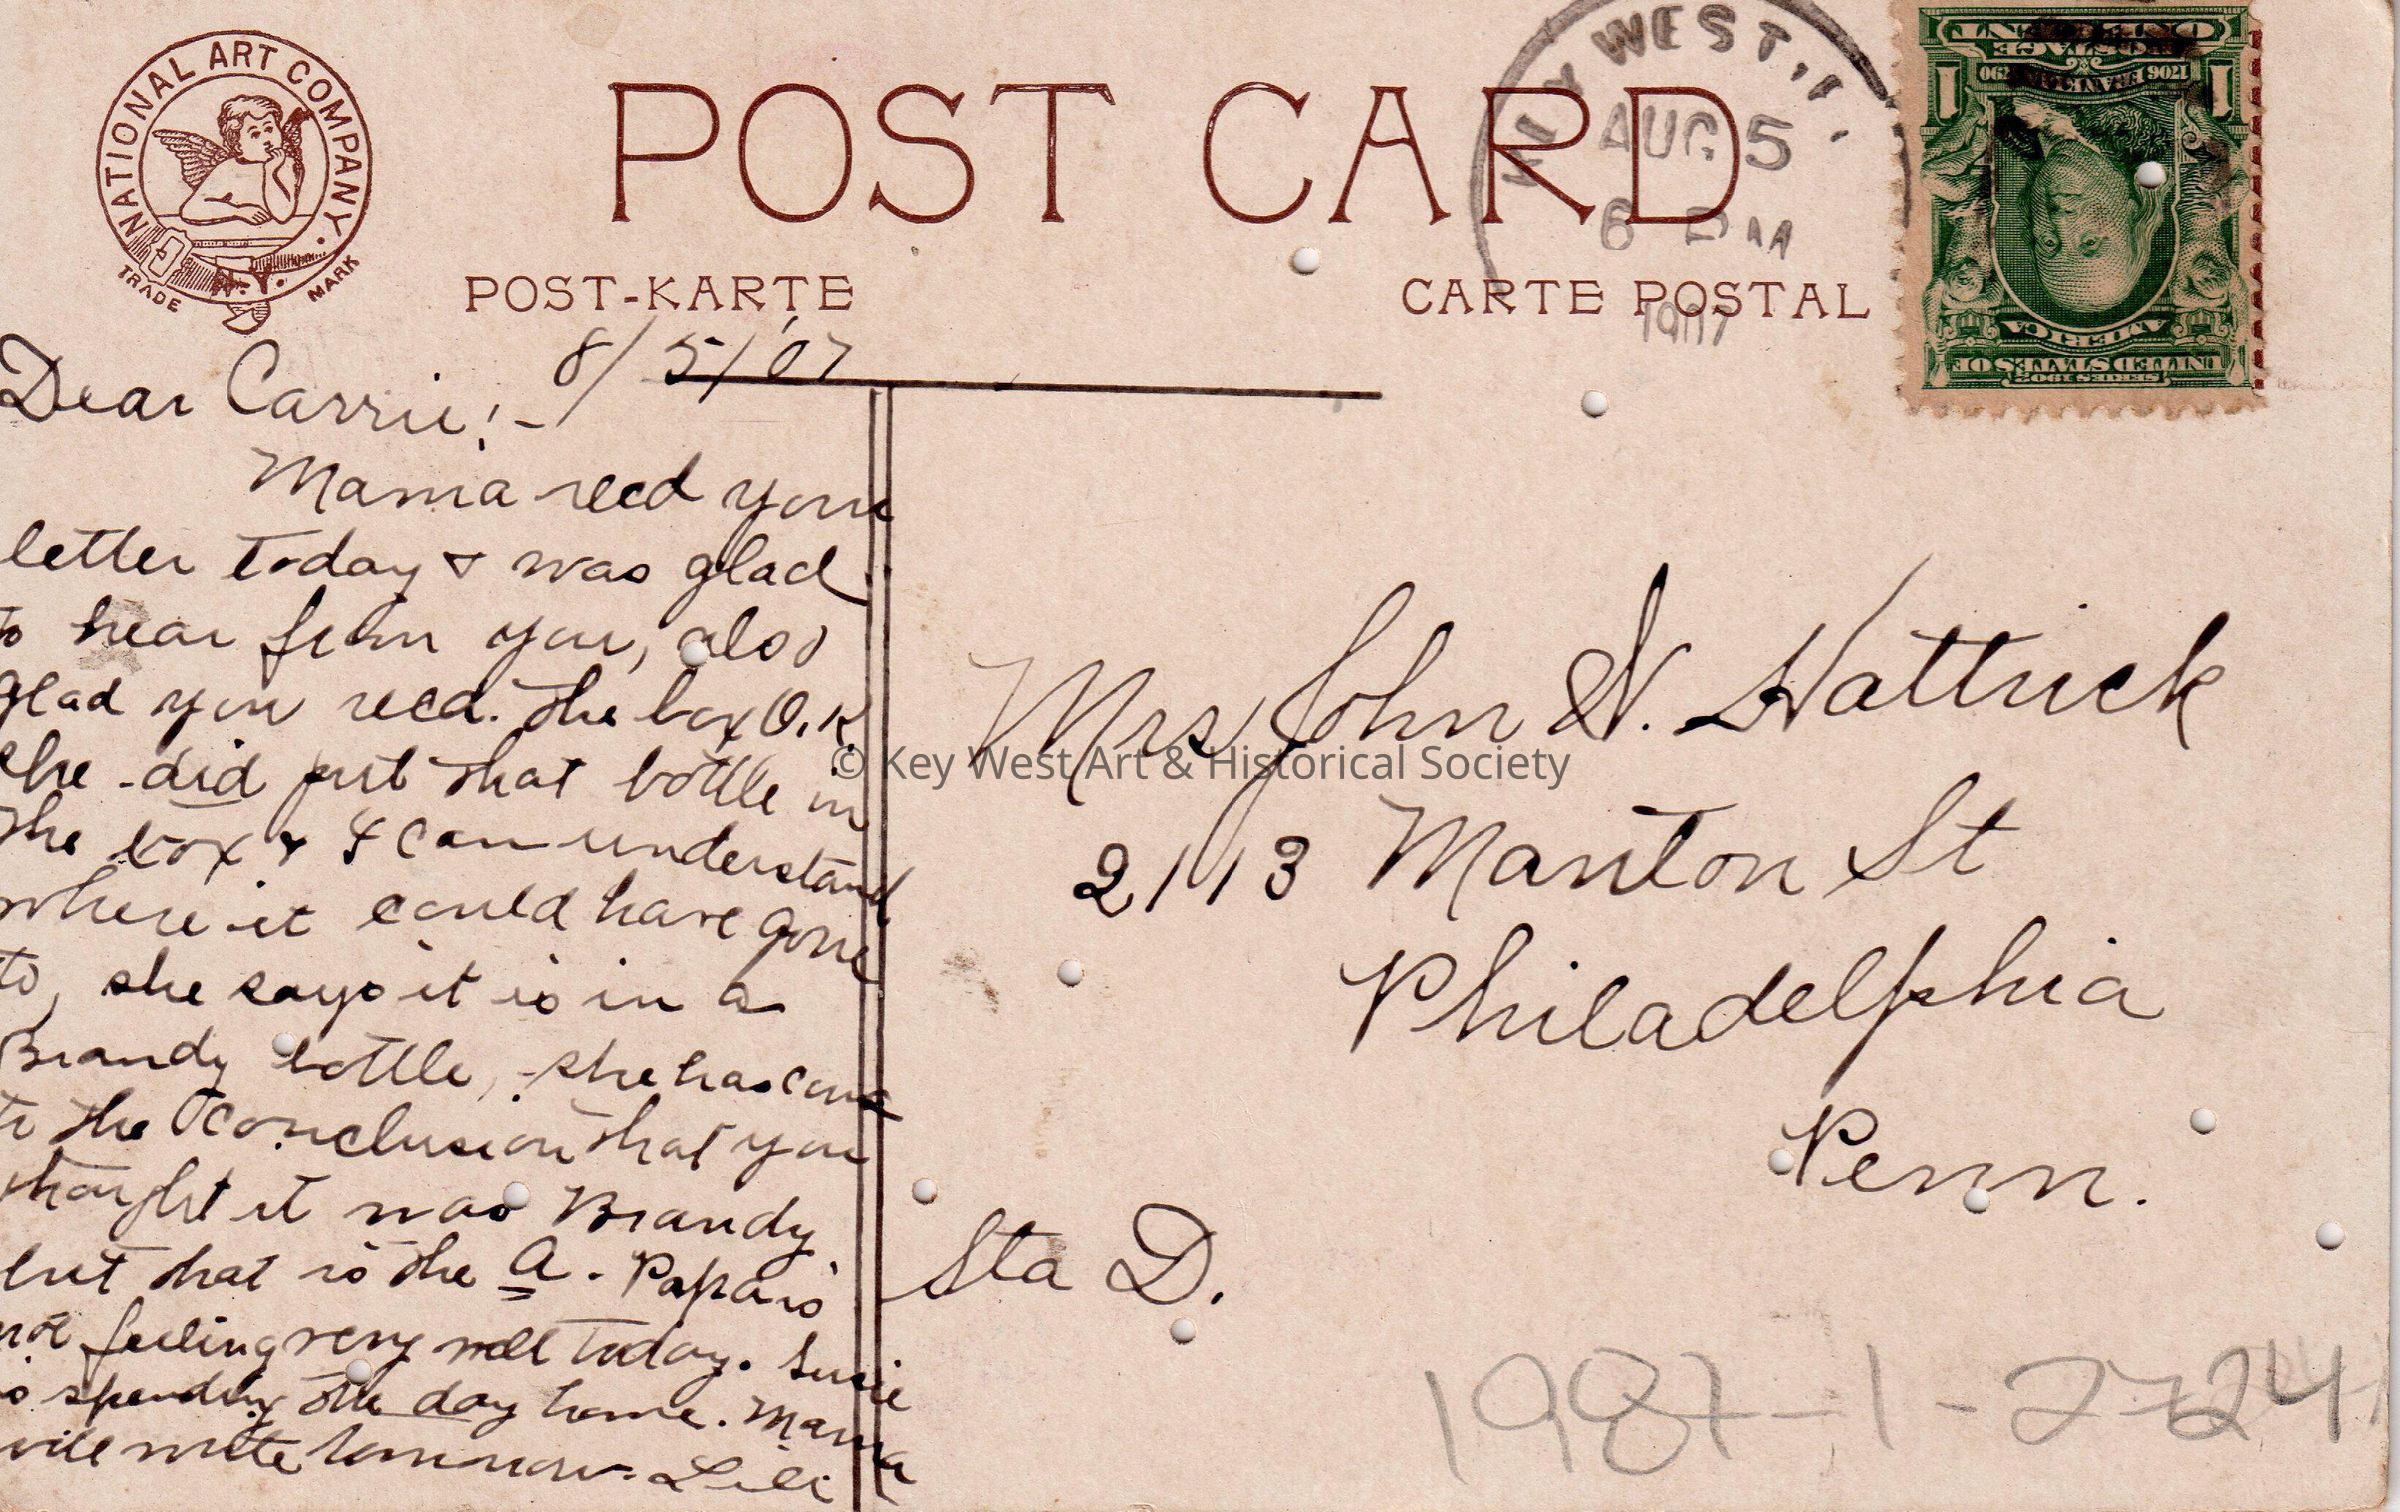 NATIONAL ART COMPANY.
N.Y.
TRADE MARK
POST CARD
POST-KARTE
CARTE POSTAL
KEY WEST,
AUG 5
6 PM
1907
POSTAGE
ONE CENT
1706 FRANKLIN 1790
1 1
UNITED STATES OF
AMERICA
SERIES 1902
8/5/07
Dear Carrie:-
Mama recd your
letter today & was glad
to hear from you, also
glad you recd. the box O.K.
She did put that bottle in
the box & I can understand
where it could have gone
to, she says it is in a
Brandy bottle, she has come
to the conclusion that you
thought it was Brandy
but that is the a. Papa is
not feeling very well today. Susie
is spending the day home. Mama
will write tomorrow.
Mrs John W. Hattrick
2113 Manton St
Philadelphia
Penn.
Sta D.
1987-1-2724
© Key West Art & Historical Society